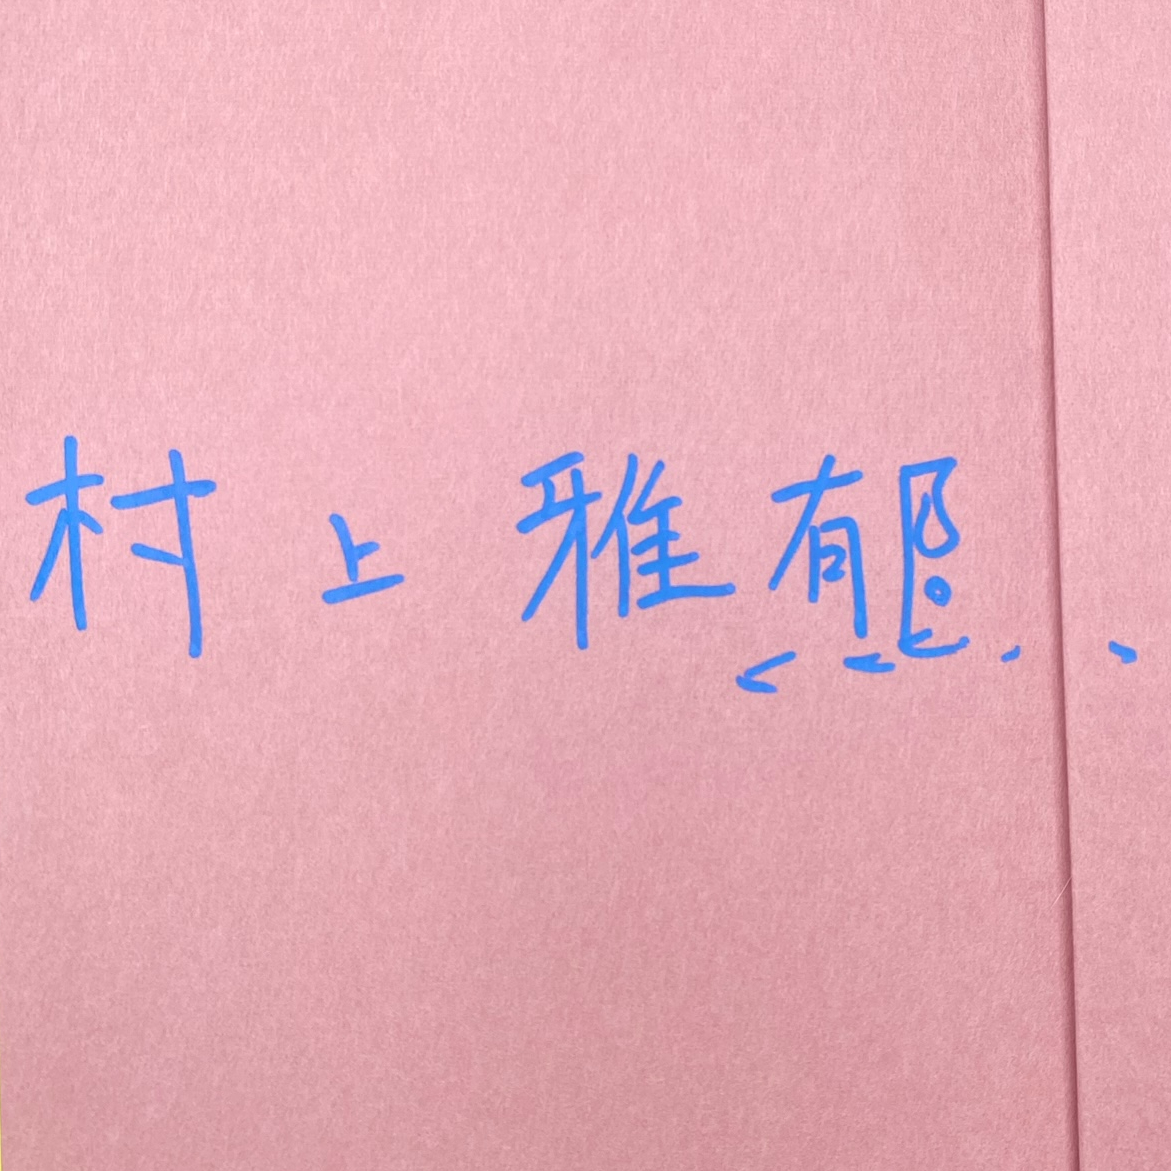 村上 雅郁